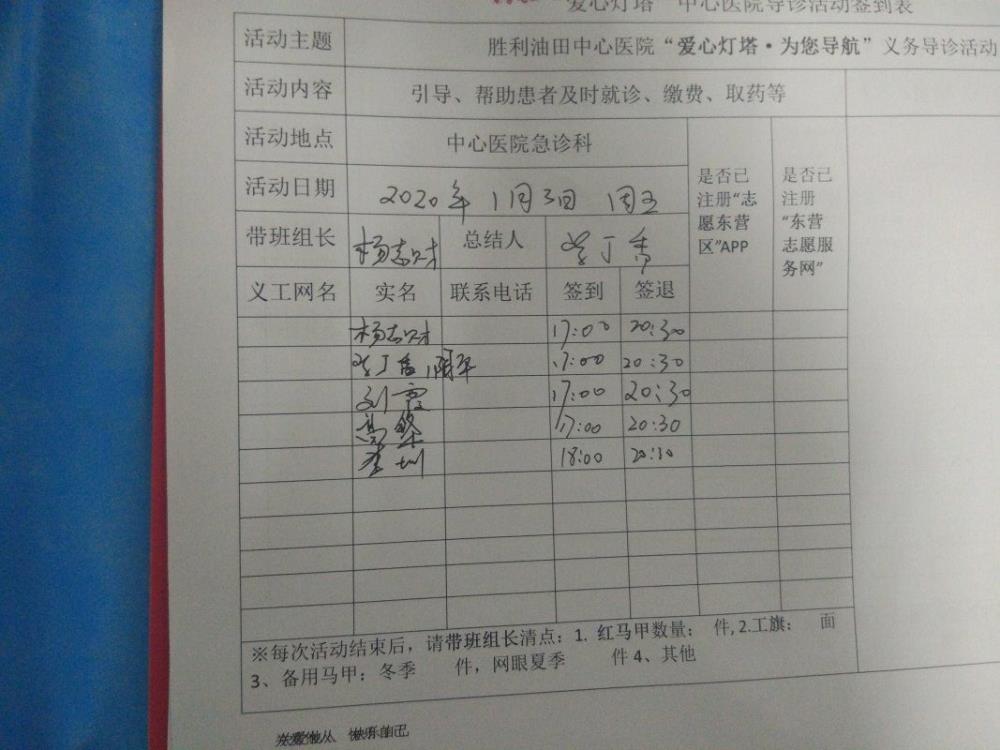 “爱心灯塔”中心医院导诊活动签到表
活动主题 胜利油田中心医院“爱心灯塔·为您导航”义务导诊活动
活动内容 引导、帮助患者及时就诊、缴费、取药等
活动地点 中心医院急诊科
活动日期 2020年1月3日 周五
是否已注册“志愿东营区”APP
是否已注册“东营志愿服务网”
带班组长 杨志财 总结人 丁香
义工网名 实名 联系电话 签到 签退
杨志财 17:00 20:30
丁香 17:00 20:30
刘霞 17:00 20:30
17:00 20:30
18:00 20:30
※每次活动结束后，请带班组长清点：1. 红马甲数量： 件, 2.工旗： 面
3、备用马甲：冬季 件，网眼夏季 件 4、其他
关爱他人 快乐自己